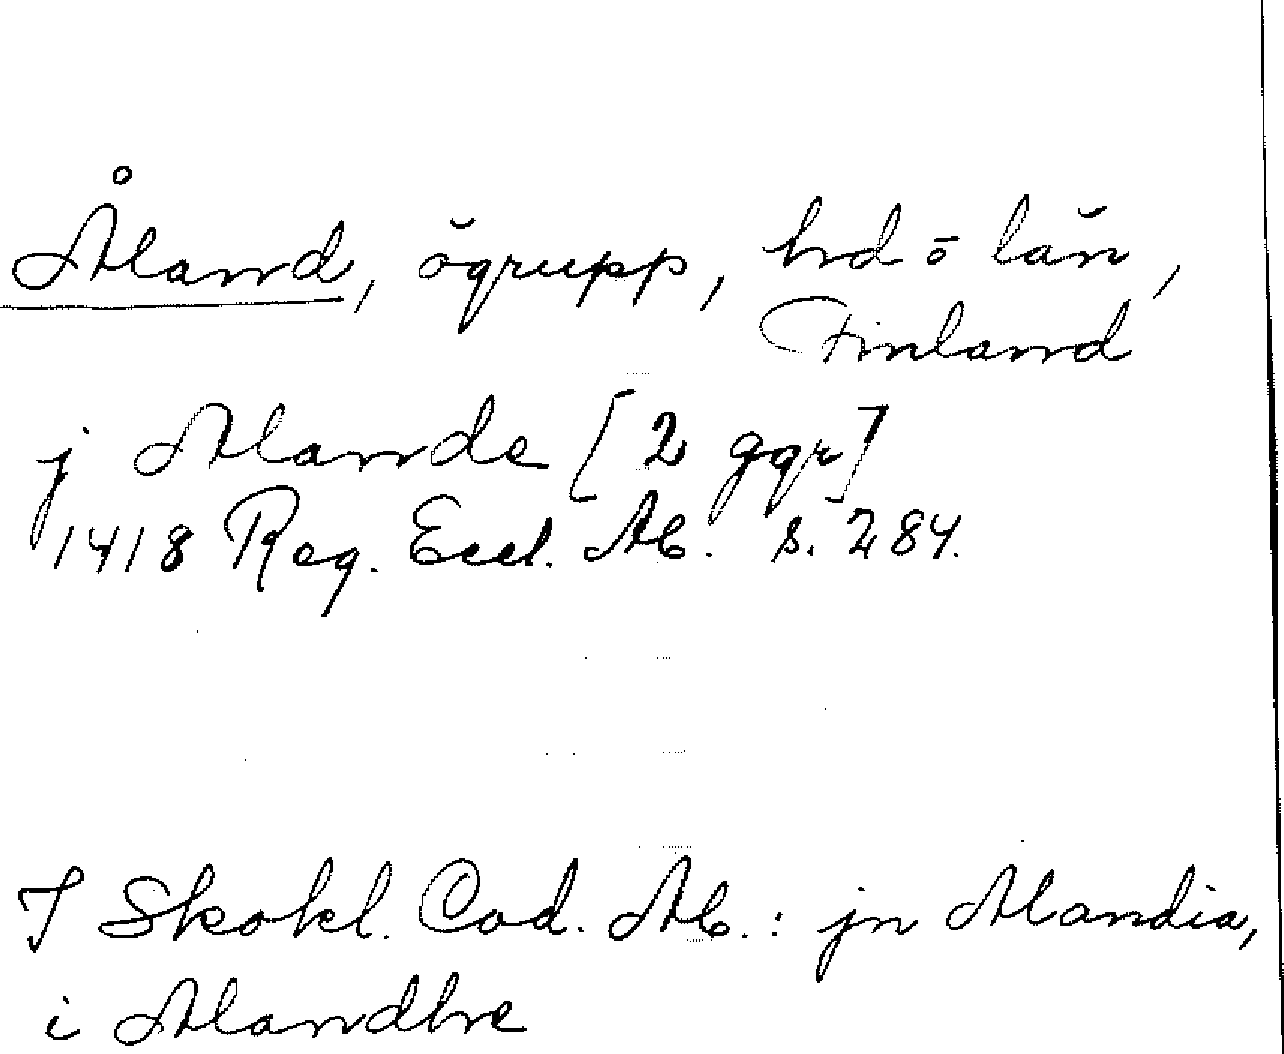 Åland, ögrupp, hd o län,
Finland
j Alande [2 ggr]
1418 Reg. Eccl. Ab. s. 284.
I Skokl. Cod. Ab.: jn Alandia,
i Alandhe